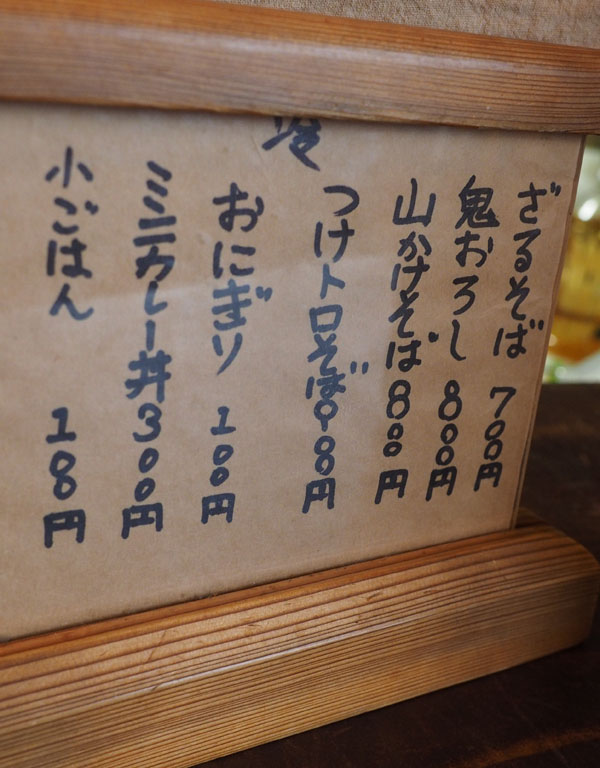 冷
ざるそば 700円
鬼おろし 800円
山かけそば 800円
つけトロそば 900円
おにぎり 100円
ミニカレー丼 300円
小ごはん 100円